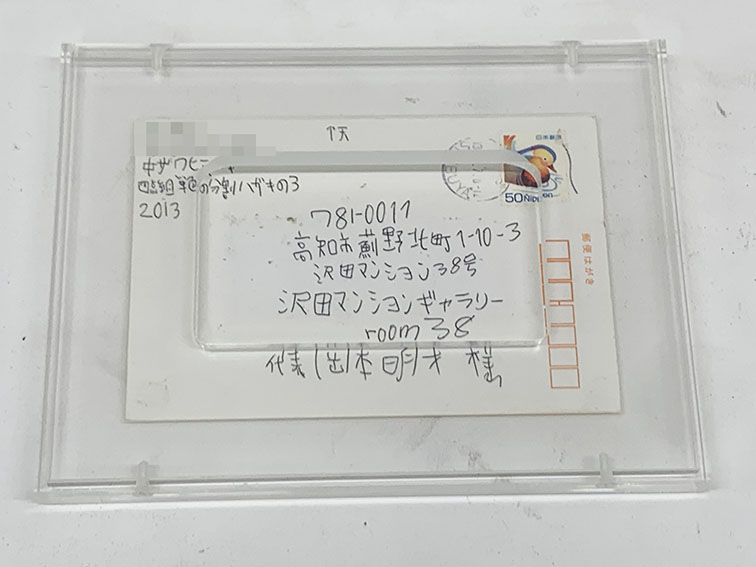 天
中ザワヒ
四組単色の分割ハガキの3
2013
日本郵便
50 NIPPON
郵便はがき
781-0011
高知市薊野北町1-10-3
沢田マンション38号
沢田マンションギャラリー
room38
代表 岡本明才 様